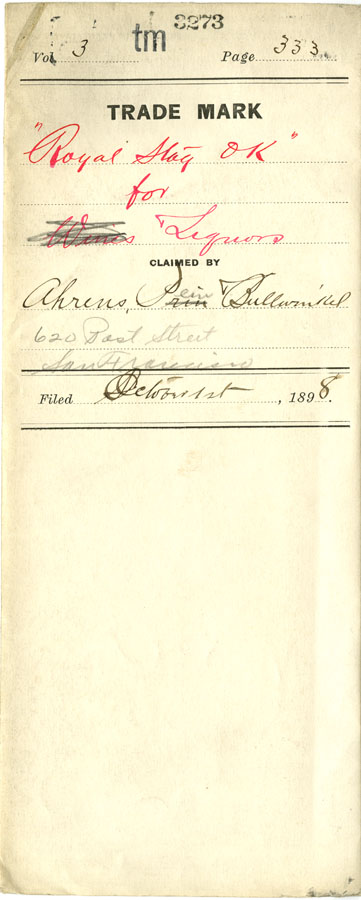 tm 3273
Vol. 3 Page 333
TRADE MARK
"Royal Stag OK"
for
Wines & Liquors
CLAIMED BY
Ahrens, Pein & Bullwinkel
620 Post Street
San Francisco
Filed October 1st, 1898.